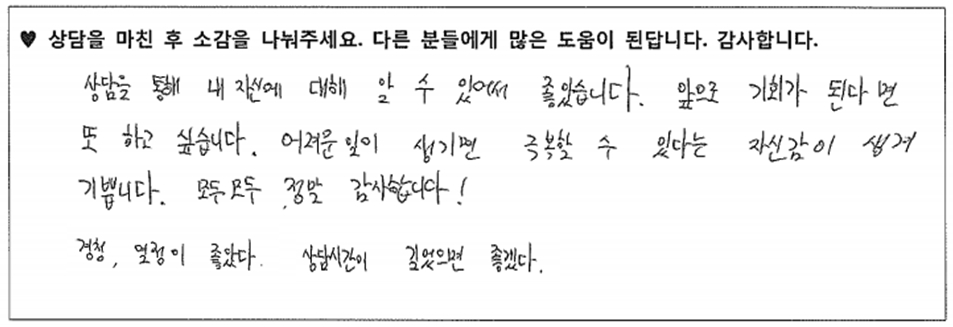 ♥ 상담을 마친 후 소감을 나눠주세요. 다른 분들에게 많은 도움이 된답니다. 감사합니다.
상담을 통해 내 자신에 대해 알 수 있어서 좋았습니다. 앞으로 기회가 된다면
또 하고 싶습니다. 어려운 일이 생기면 극복할 수 있다는 자신감이 생겨
기쁩니다. 모두모두 정말 감사합니다!
경청, 열정이 좋았다. 상담시간이 길었으면 좋겠다.